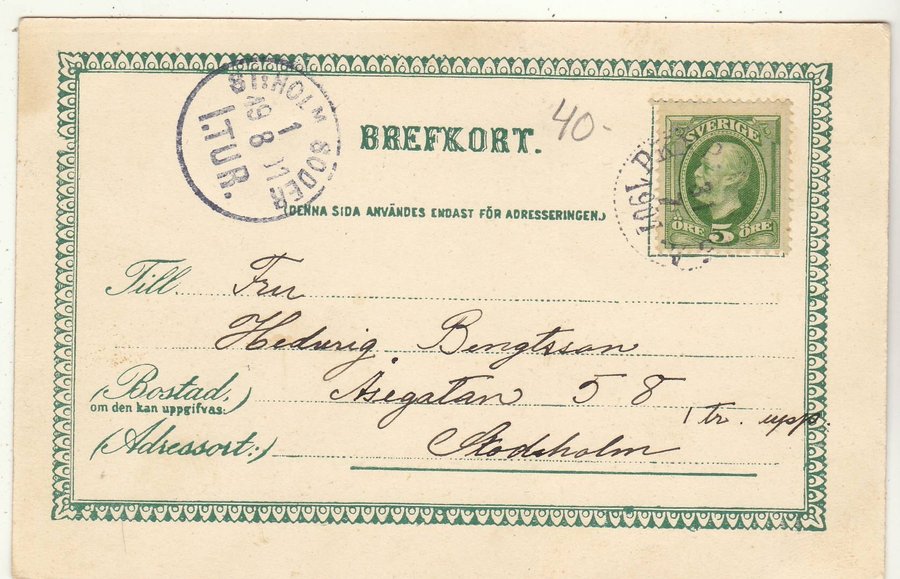 STOCKHOLM SÖDER
1
19 8 01
1.TUR.
40-
BREFKORT.
(DENNA SIDA ANVÄNDES ENDAST FÖR ADRESSERINGEN.)
SVERIGE
ÖRE 5 ÖRE
31
7
1901
Till Fru
Hedvig Bengtsson
(Bostad, Åsegatan 58
om den kan uppgifvas:)
1 tr. upp.
(Adressort:) Stockholm